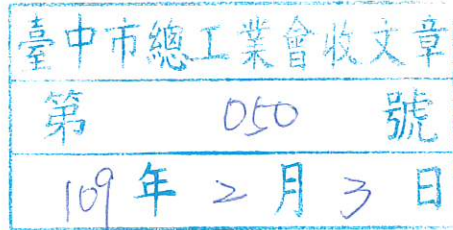 臺中市總工業會收文章
第 050 號
109 年 2 月 3 日